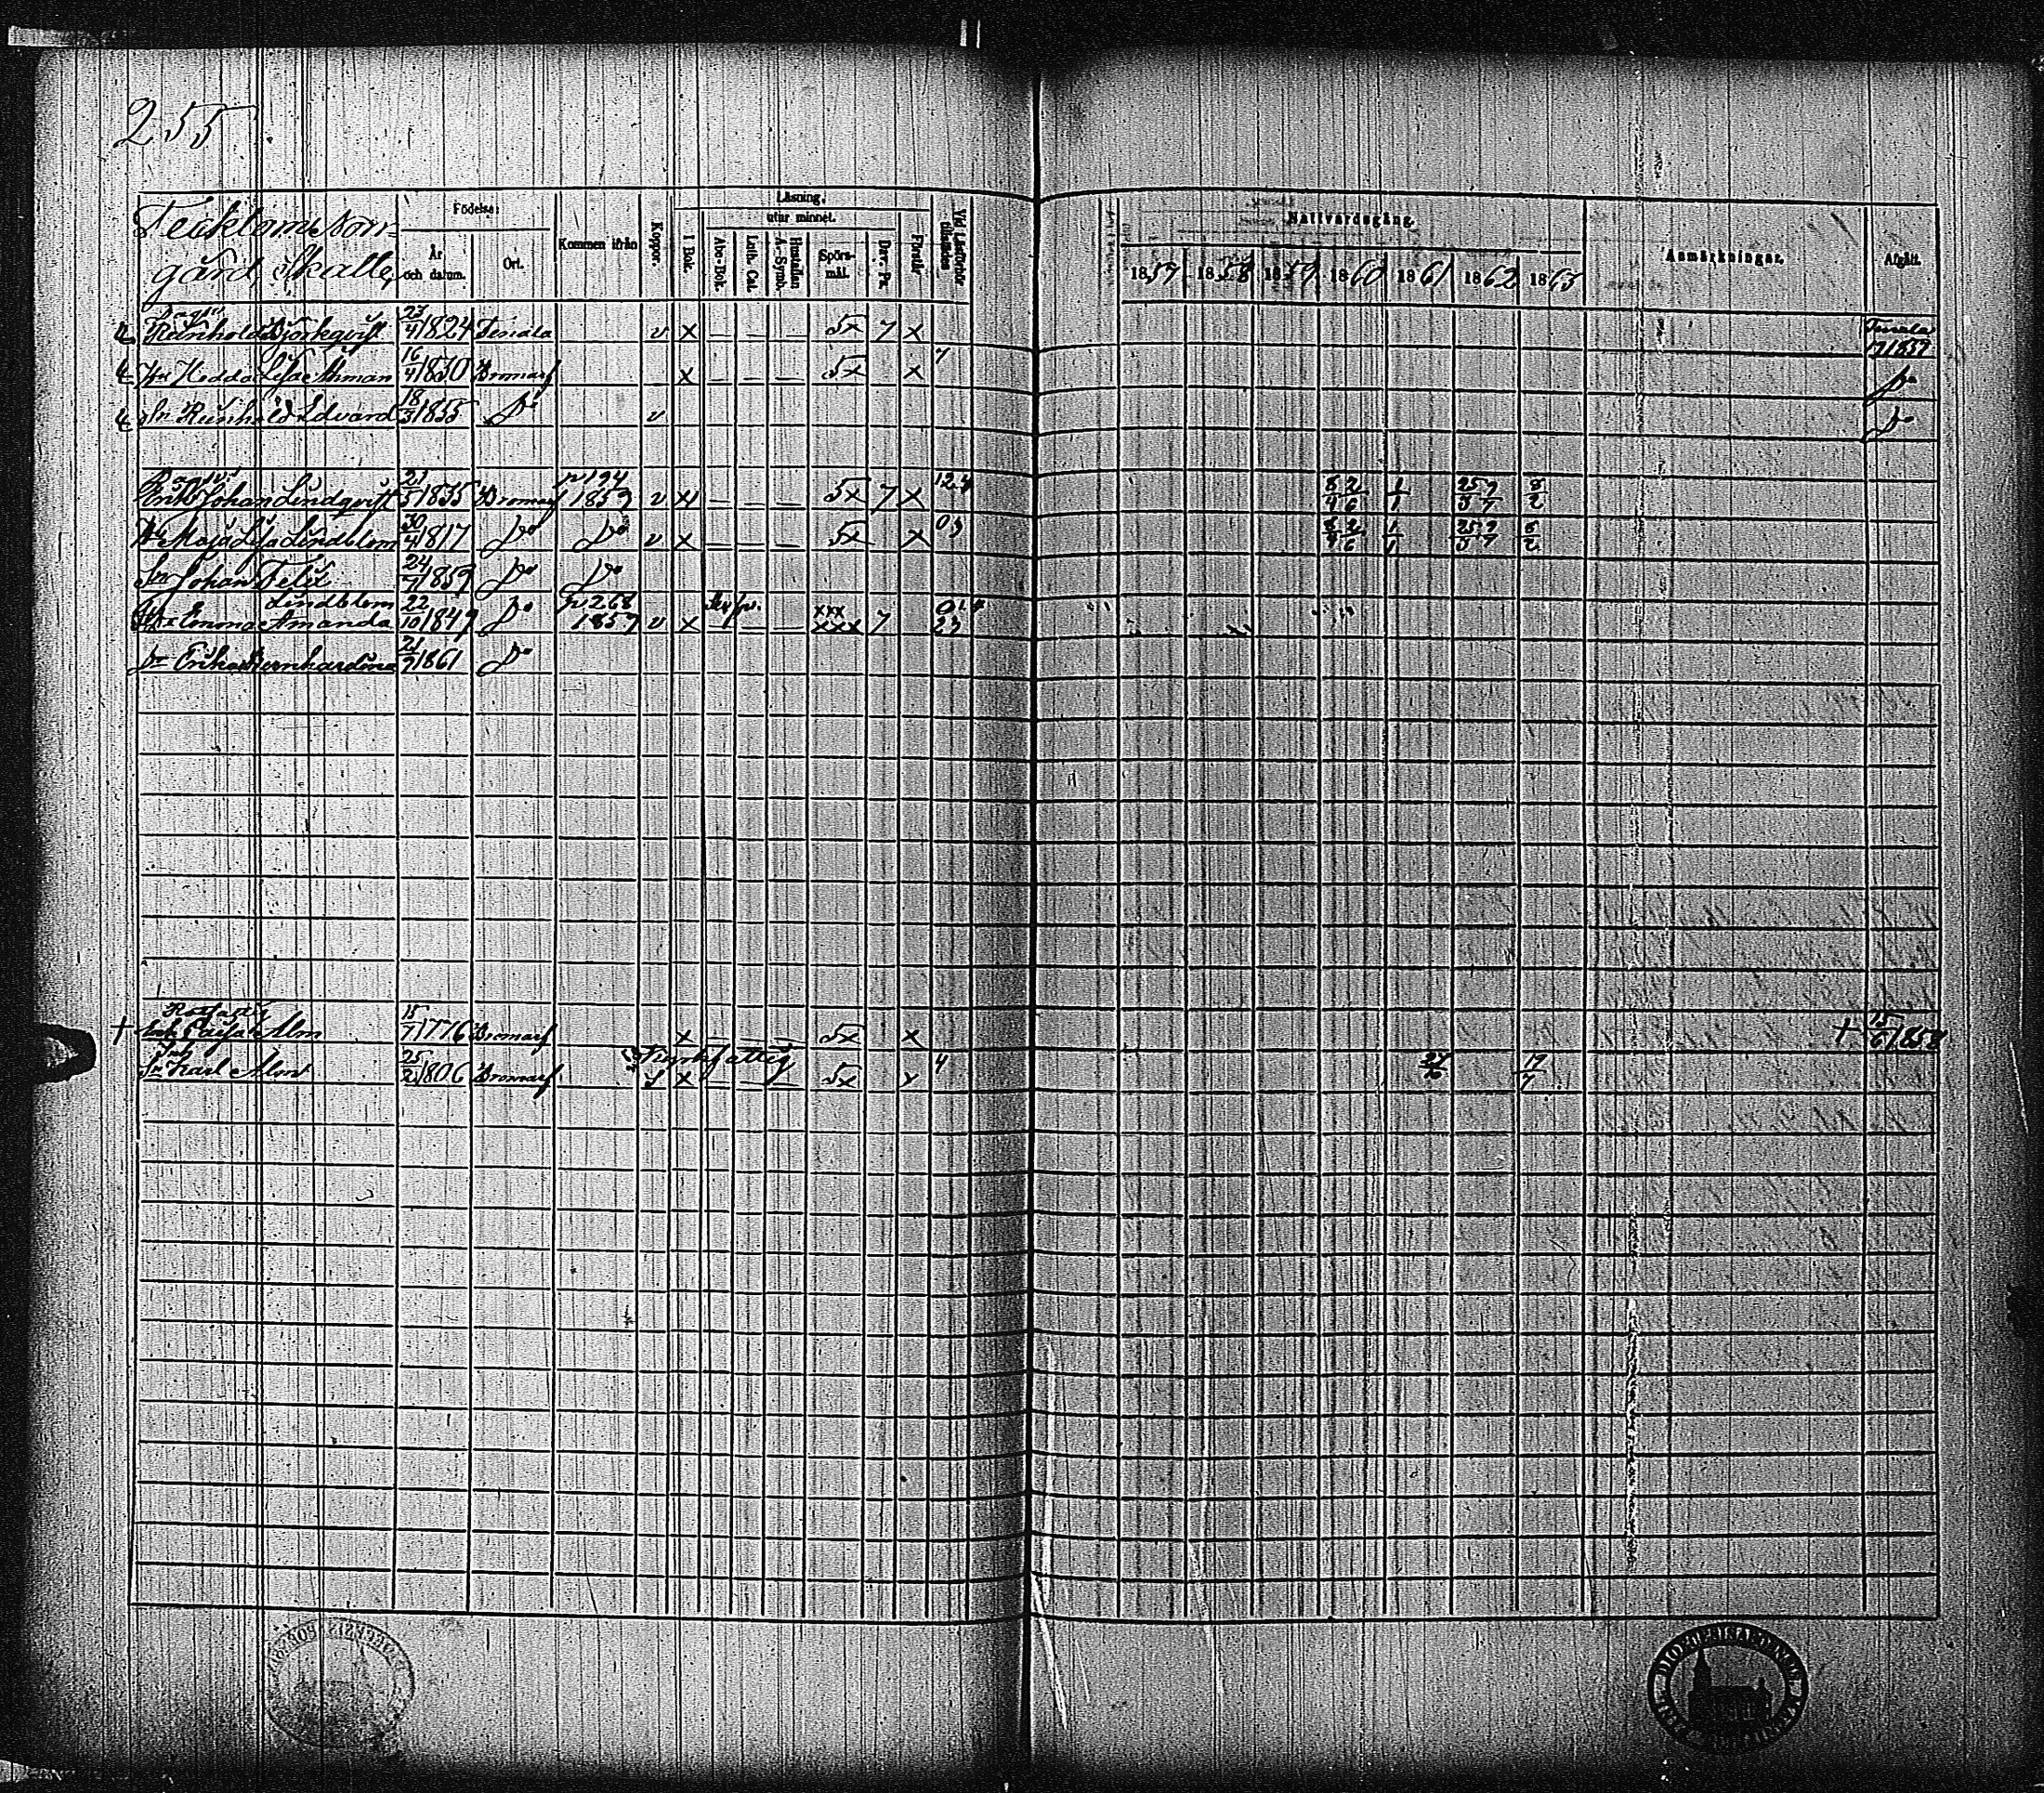 255
Tecktom Norr-
gård, Skatte,
Födelse:
År och datum.
Ort.
Kommen ifrån
Koppor.
Läsning,
utur minnet.
I Bok.
Abc-Bok.
Luth. Cat.
Hustaflan A.-Symb.
Spörs-mål.
Dav. Ps.
Förstår
Vid Läsförhör tillstädes
Nattvardsgång.
1857 1858 1859 1860 1861 1862 1863
Anmärkningar.
Afgått.
Reinhold Björkqvist 23/4 1824 Tenala v x — — — 5x 7 x Tenala 1857
Hu Hedda Lisa Åhman 16/4 1830 Bromarf x — — — 5x x 7 Do
Sn Reinhold Edvard 18/3 1855 Do v Do
Johan Lindqvist 21/5 1835 Bromarf p 194 1859 v x — — — 5x 7 x 12.4 8/4 2/6 1/1 25/3 9/7 8/2
Hu Maja Lisa Lindblom 30/4 1817 Do Do v x — — — 5x x 03 8/4 2/6 1/1 25/3 9/7 8/2
Sn Johan Felix 24/11 1859 Do Do
Lindblom
Emma Amanda 22/10 1849 Do p 268 1857 v x — — xxx xxx 7 23
Dr Erika Bernhardina 21/9 1861 Do
† Cajsa Alm 15/7 1776 Bromarf x — — — 5x x † 15/6 1858
Sn Karl Alm 25/2 1806 Bromarf v x — — — 5x x 4 27/10 19/7